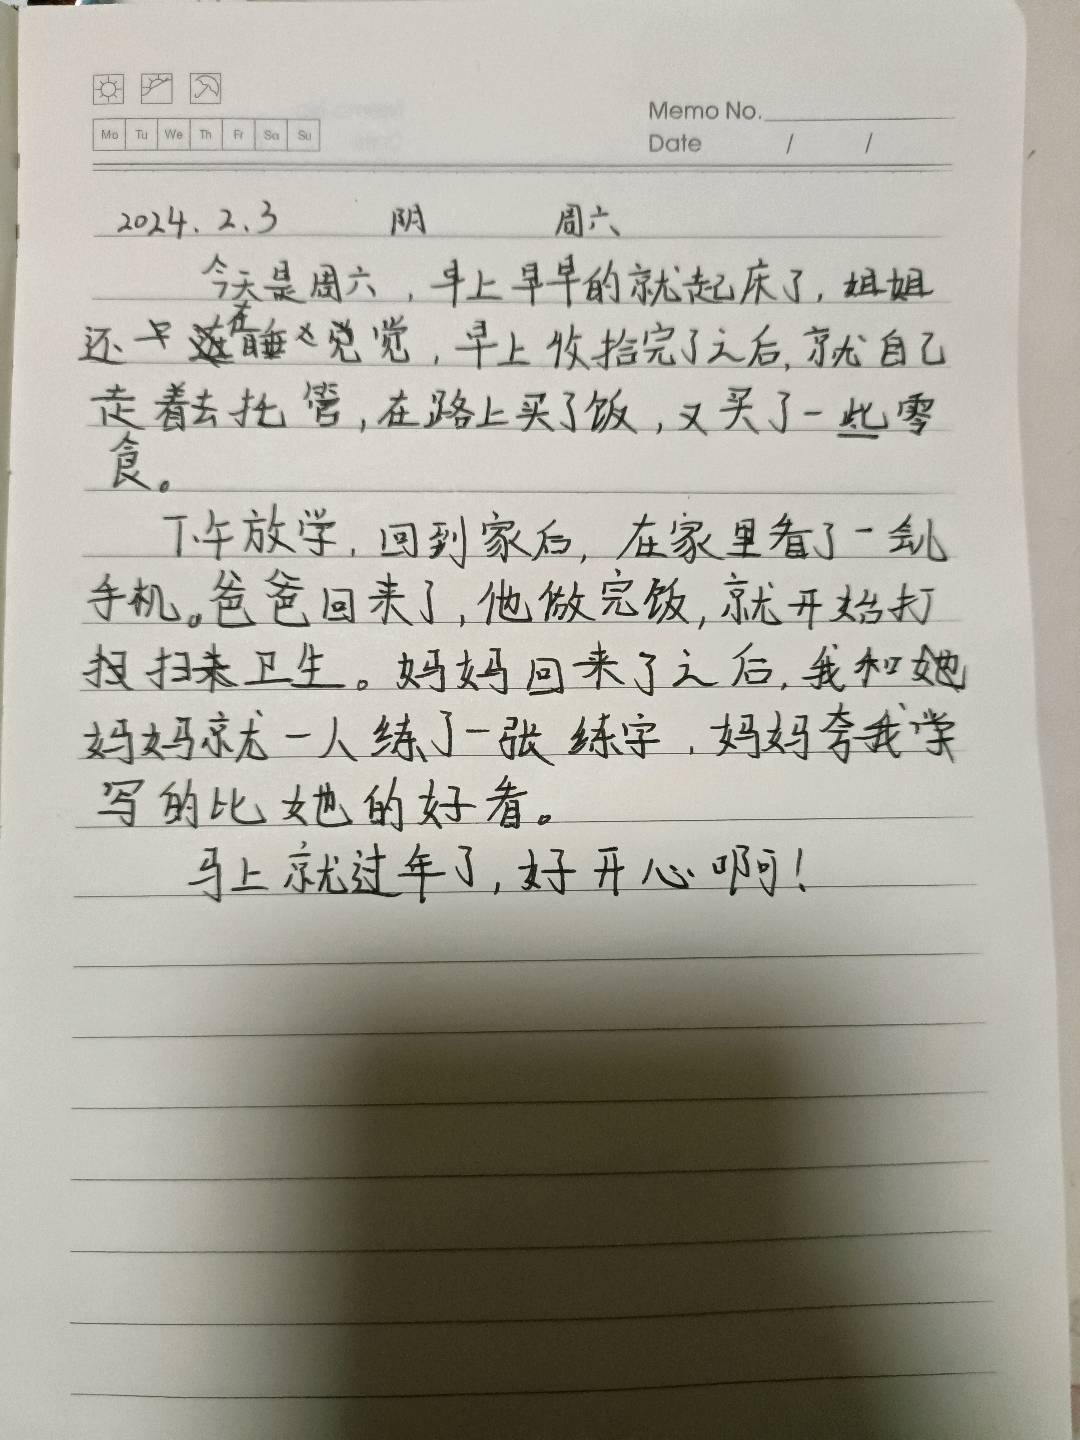 Memo No.
Mo Tu We Th Fr Sa Su
Date / /
2024.2.3 阴 周六
今天是周六，早上早早的就起床了，姐姐
还在睡觉，早上收拾完了之后，就自己
走着去托管，在路上买了饭，又买了一些零
食。
下午放学，回到家后，在家里看了一会儿
手机。爸爸回来了，他做完饭，就开始打
扫卫生。妈妈回来了之后，我和她
妈妈就一人练了一张练字，妈妈夸我字
写的比她的好看。
马上就过年了，好开心啊！